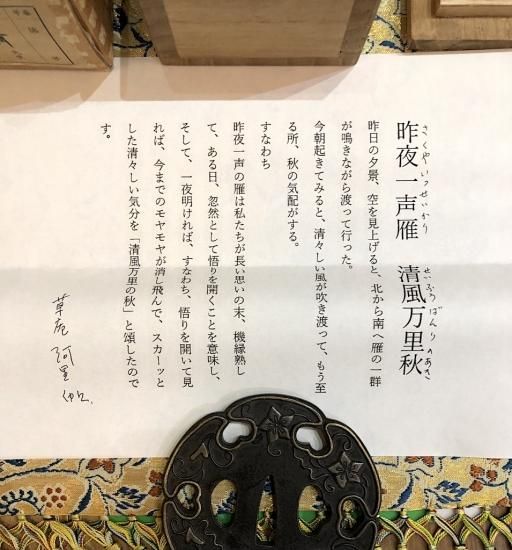 さくやいっせいかり せいふうばんりのあき
昨夜一声雁 清風万里秋
昨日の夕景、空を見上げると、北から南へ雁の一群
が鳴きながら渡って行った。
今朝起きてみると、清々しい風が吹き渡って、もう至
る所、秋の気配がする。
すなわち
昨夜一声の雁は私たちが長い思いの末、機縁熟し
て、ある日、忽然として悟りを開くことを意味し、
そして、一夜明ければ、すなわち、悟りを開いて見
れば、今までのモヤモヤが消し飛んで、スカーッと
した清々しい気分を「清風万里の秋」と頌したので
す。